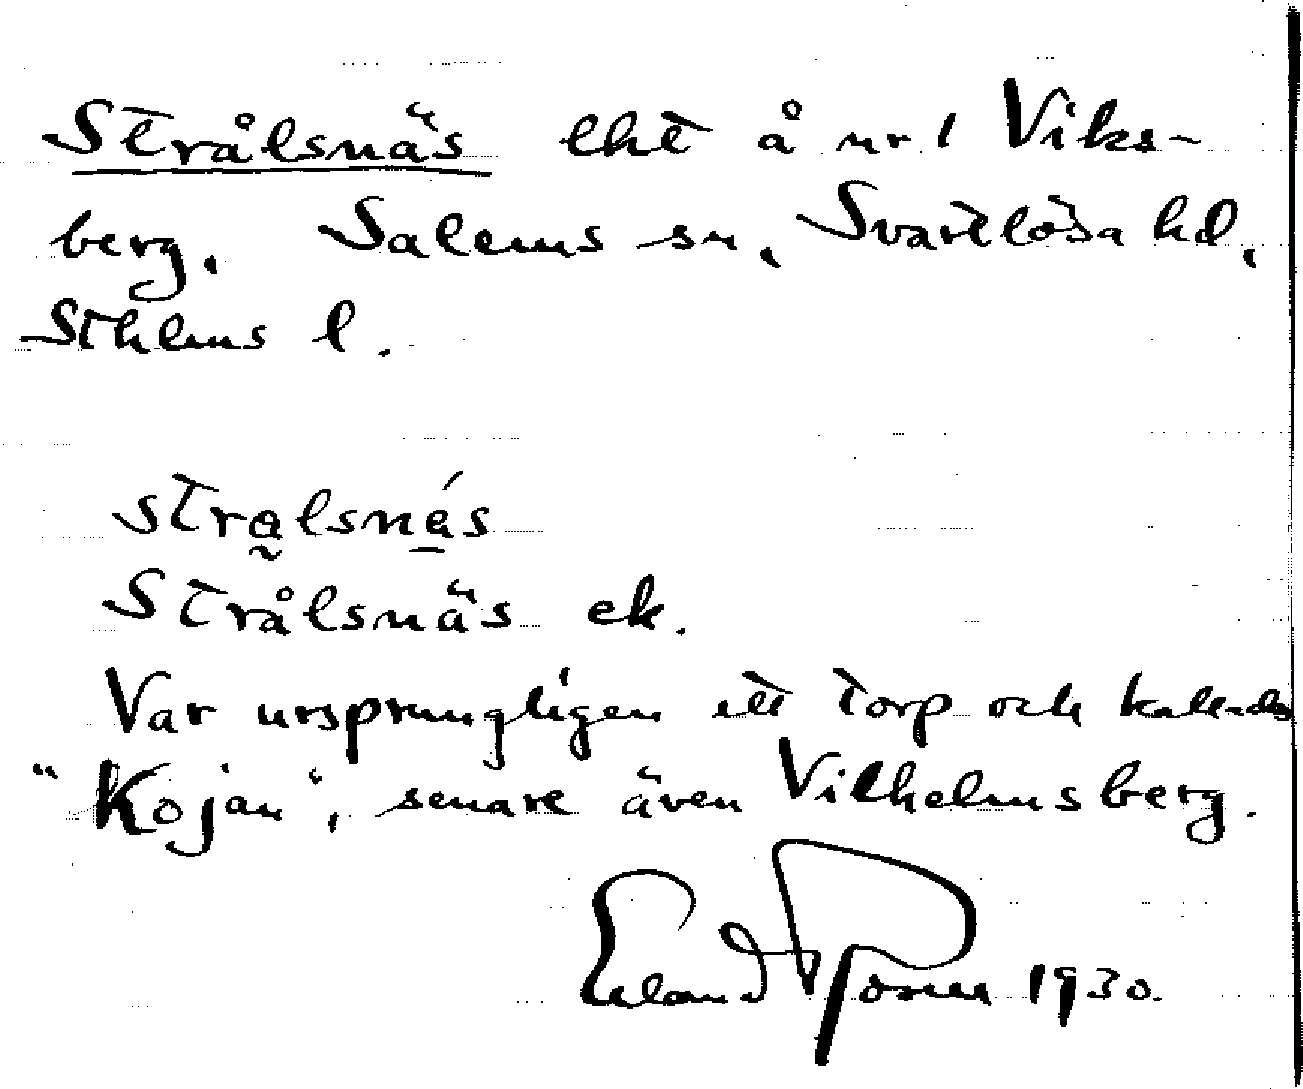 Strålsnäs lht å nr 1 Viks-
berg. Salems sn, Svartlösa hd,
Sthlms l.
stra̰lsné̱s
Strålsnäs ek.
Var ursprungligen ett torp och kallades
"Kojan", senare även Vilhelmsberg.
Erland Rosell 1930.